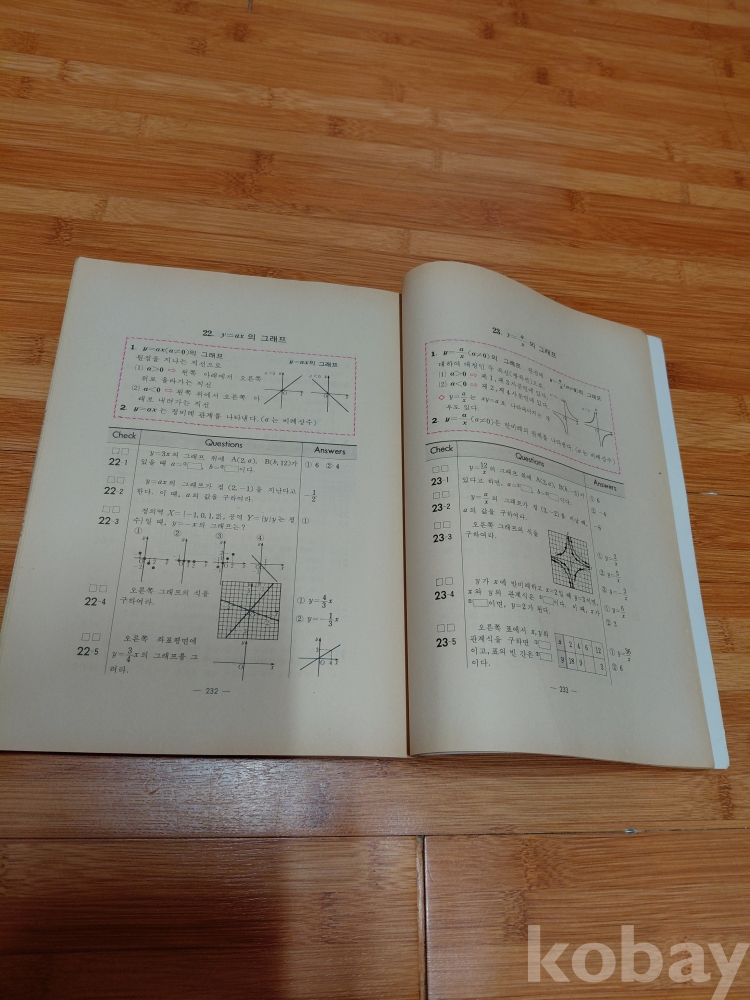 22. y=ax의 그래프
1. y=ax(a≠0)의 그래프
y=ax의 그래프
원점을 지나는 직선으로
(1) a>0 ⇨ 왼쪽 아래에서 오른쪽
위로 올라가는 직선
(2) a<0 ⇨ 왼쪽 위에서 오른쪽 아
래로 내려가는 직선
2. y=ax는 정비례 관계를 나타낸다. (a는 비례상수)
Check Questions Answers
22-1 y=3x의 그래프 위에 A(2, a), B(b, 12)가
있을 때 a=①□, b=②□이다.
① 6 ② 4
22-2 y=ax의 그래프가 점 (2, -1)을 지난다고
한다. 이 때, a의 값을 구하여라.
-1/2
22-3 정의역 X={-1, 0, 1, 2}, 공역 Y={y|y는 정
수}일 때, y=-x의 그래프는?
①
① ② ③ ④
22-4 오른쪽 그래프의 식을
구하여라.
① y=4/3x
② y=-1/3x
22-5 오른쪽 좌표평면에
y=3/4x의 그래프를 그
려라.
— 232 —
23. y=a/x의 그래프
1. y=a/x(a≠0)의 그래프
(1) a>0 ⇨ 제1, 제3사분면에 있다.
(2) a<0 ⇨ 제2, 제4사분면에 있다.
2. y=a/x(a≠0)은 반비례의 관계를 나타낸다. (a는 비례상수)
Check Questions Answers
23-1 y=12/x의 그래프 위에 A(2, a), B(b, -3)가
있다고 하면, a=①□, b=②□이다.
① 6
② -4
23-2 y=a/x의 그래프가 점 (3, -2)를 지날 때,
a의 값을 구하여라.
-6
23-3 오른쪽 그래프의 식을
구하여라.
23-4 y가 x에 반비례하고 x=2일 때 y=3이면,
x와 y의 관계식은 ①□이다. 이 때, x가
②□이면, y=2가 된다.
① y=6/x
② 3
23-5 오른쪽 표에서 x, y의
관계식을 구하면 ①□
이고, 표의 빈 칸은 ②□
이다.
x 2 4 6 12
y 18 9 3
① y=36/x
② 6
— 233 —
kobay